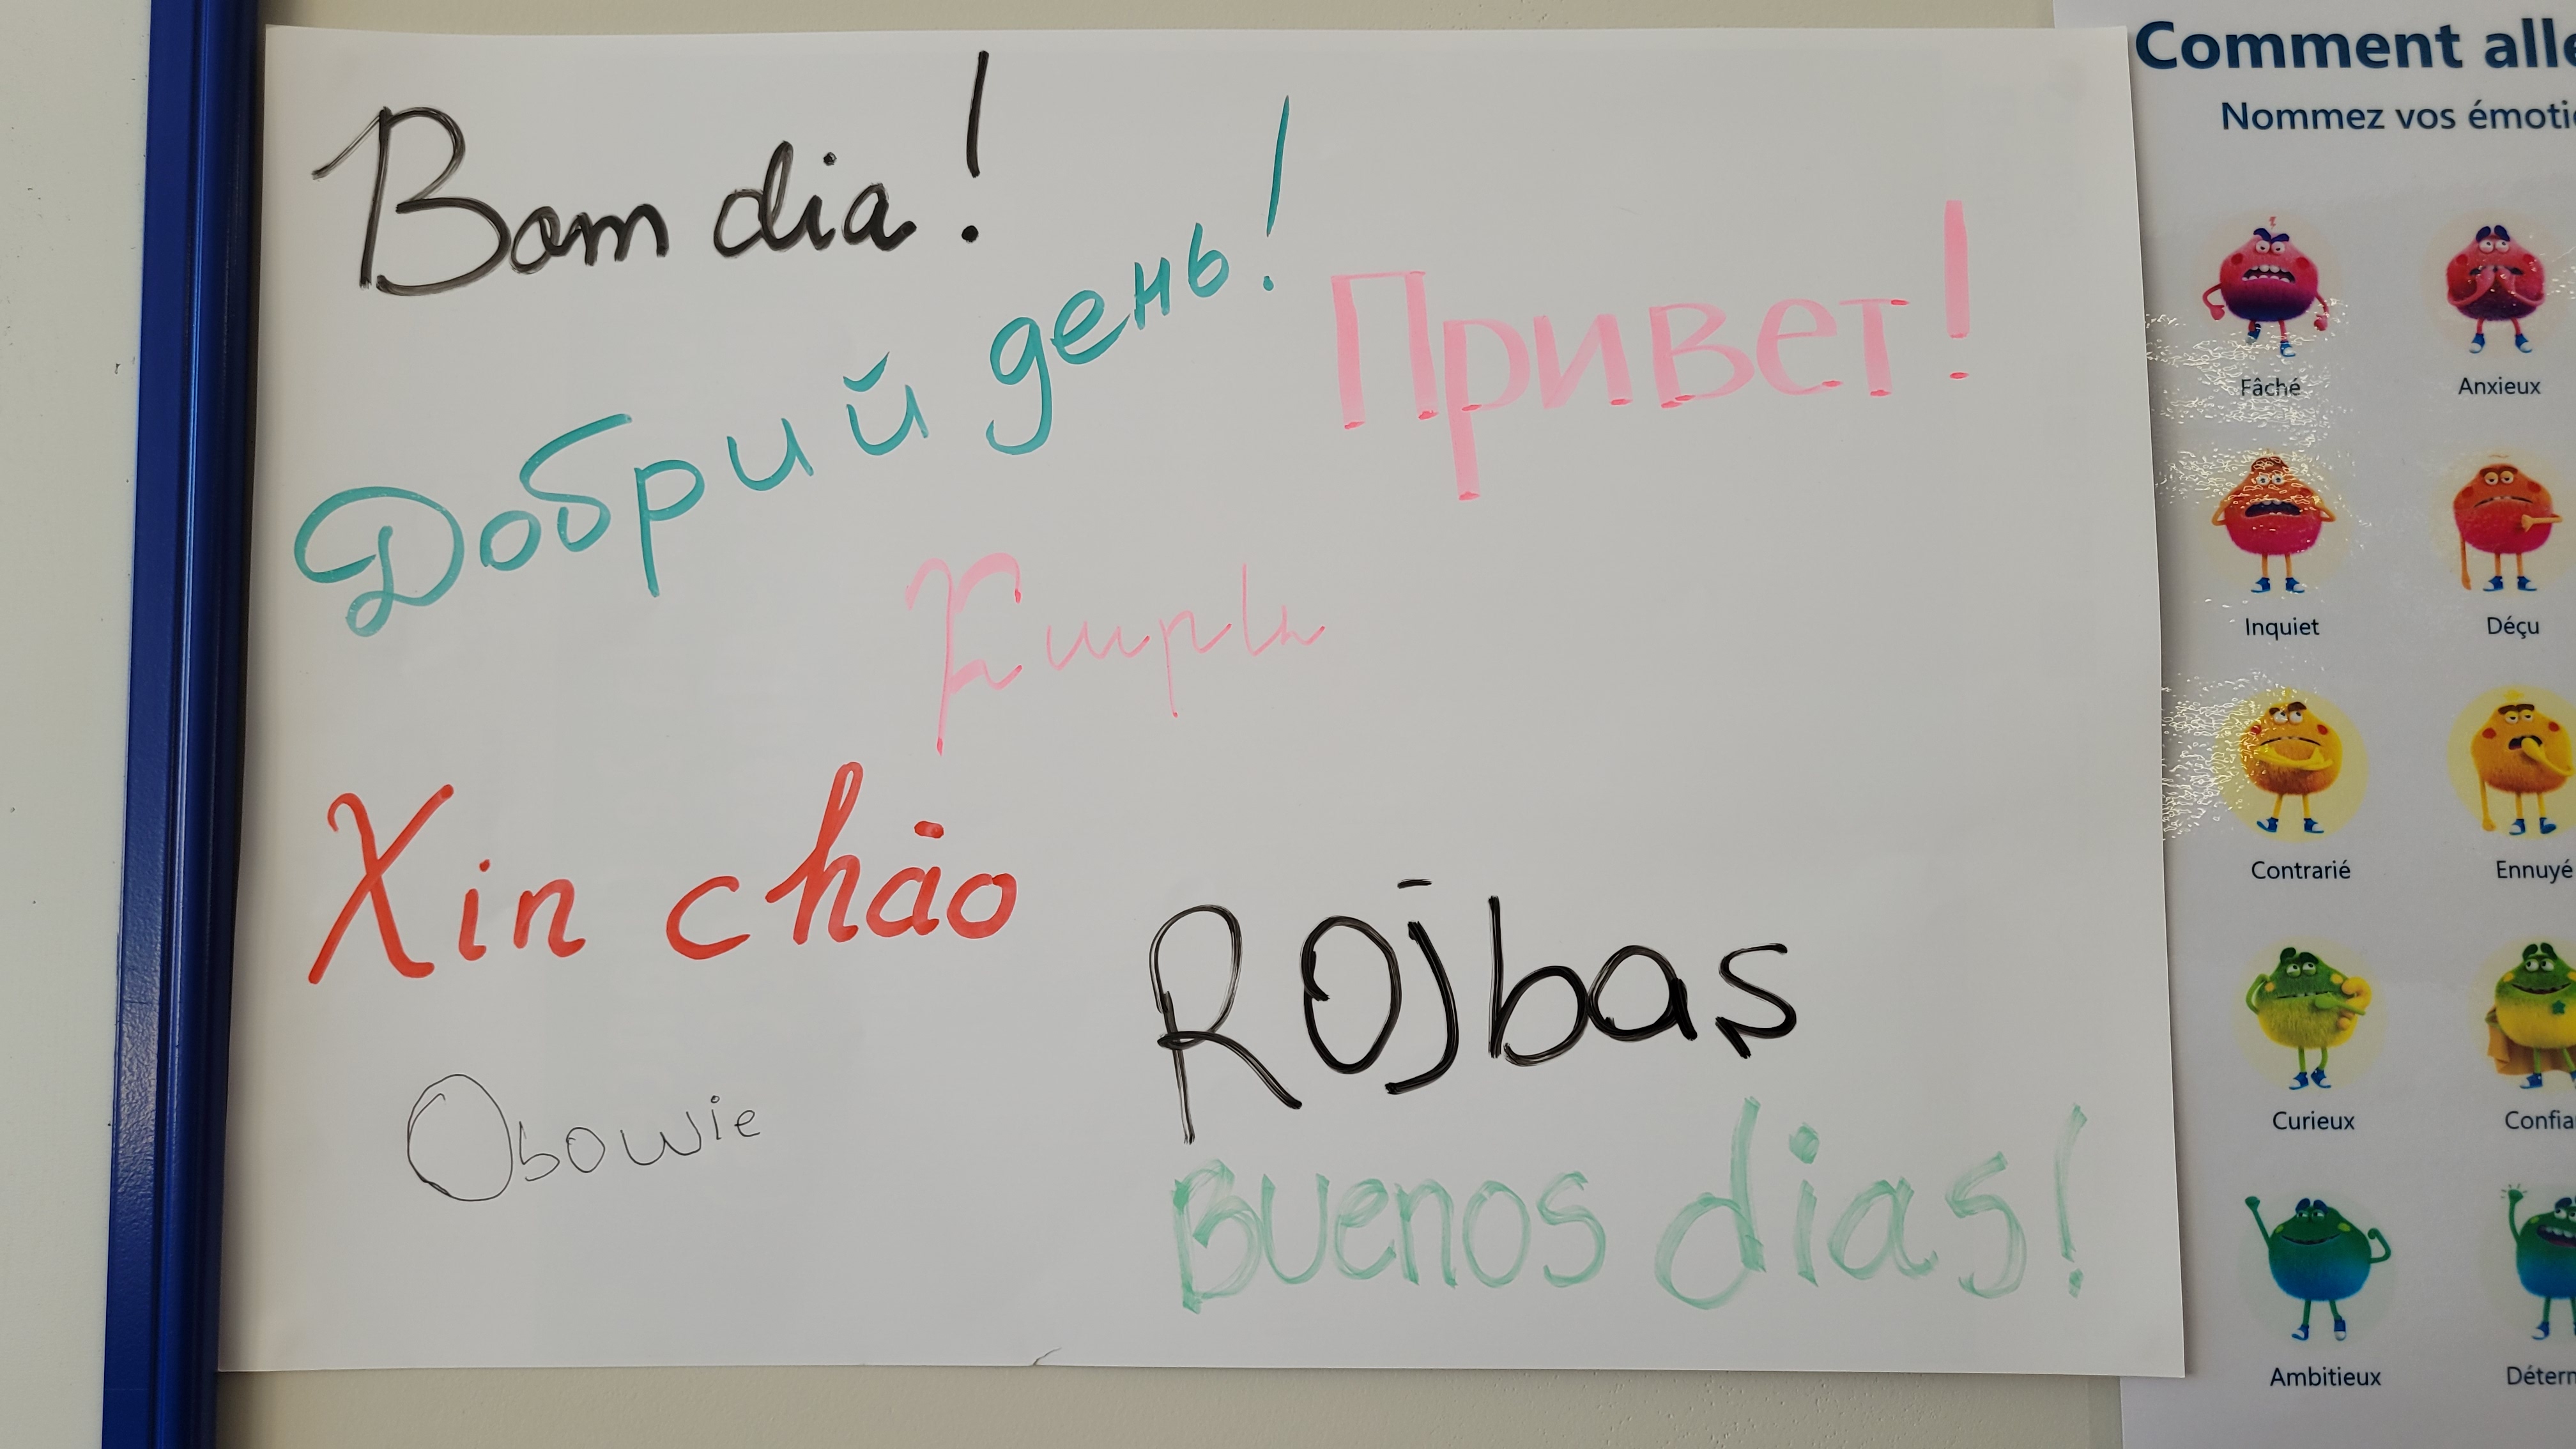 Bom dia!
Добрий день!
Привет!
Xin chào
Rojbaş
Obowie
Buenos dias!
Comment alle
Nommez vos émoti
Fâché
Anxieux
Inquiet
Déçu
Contrarié
Ennuyé
Curieux
Confia
Ambitieux
Déterm